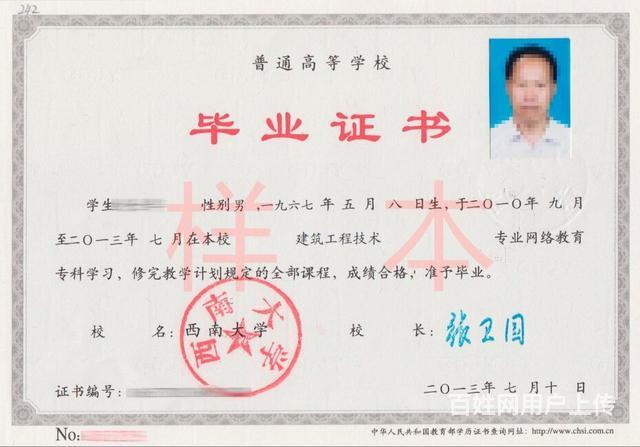 242
普通高等学校
毕业证书
学生 性别男，一九六七年五月八日生，于二〇一〇年九月
至二〇一三年七月在本校 建筑工程技术 专业网络教育
专科学习，修完教学计划规定的全部课程，成绩合格，准予毕业。
样本
校 名：西南大学 校 长：张卫国
西南大学
证书编号： 二〇一三年七月十日
百姓网用户上传
No: 中华人民共和国教育部学历证书查询网址：http://www.chsi.com.cn